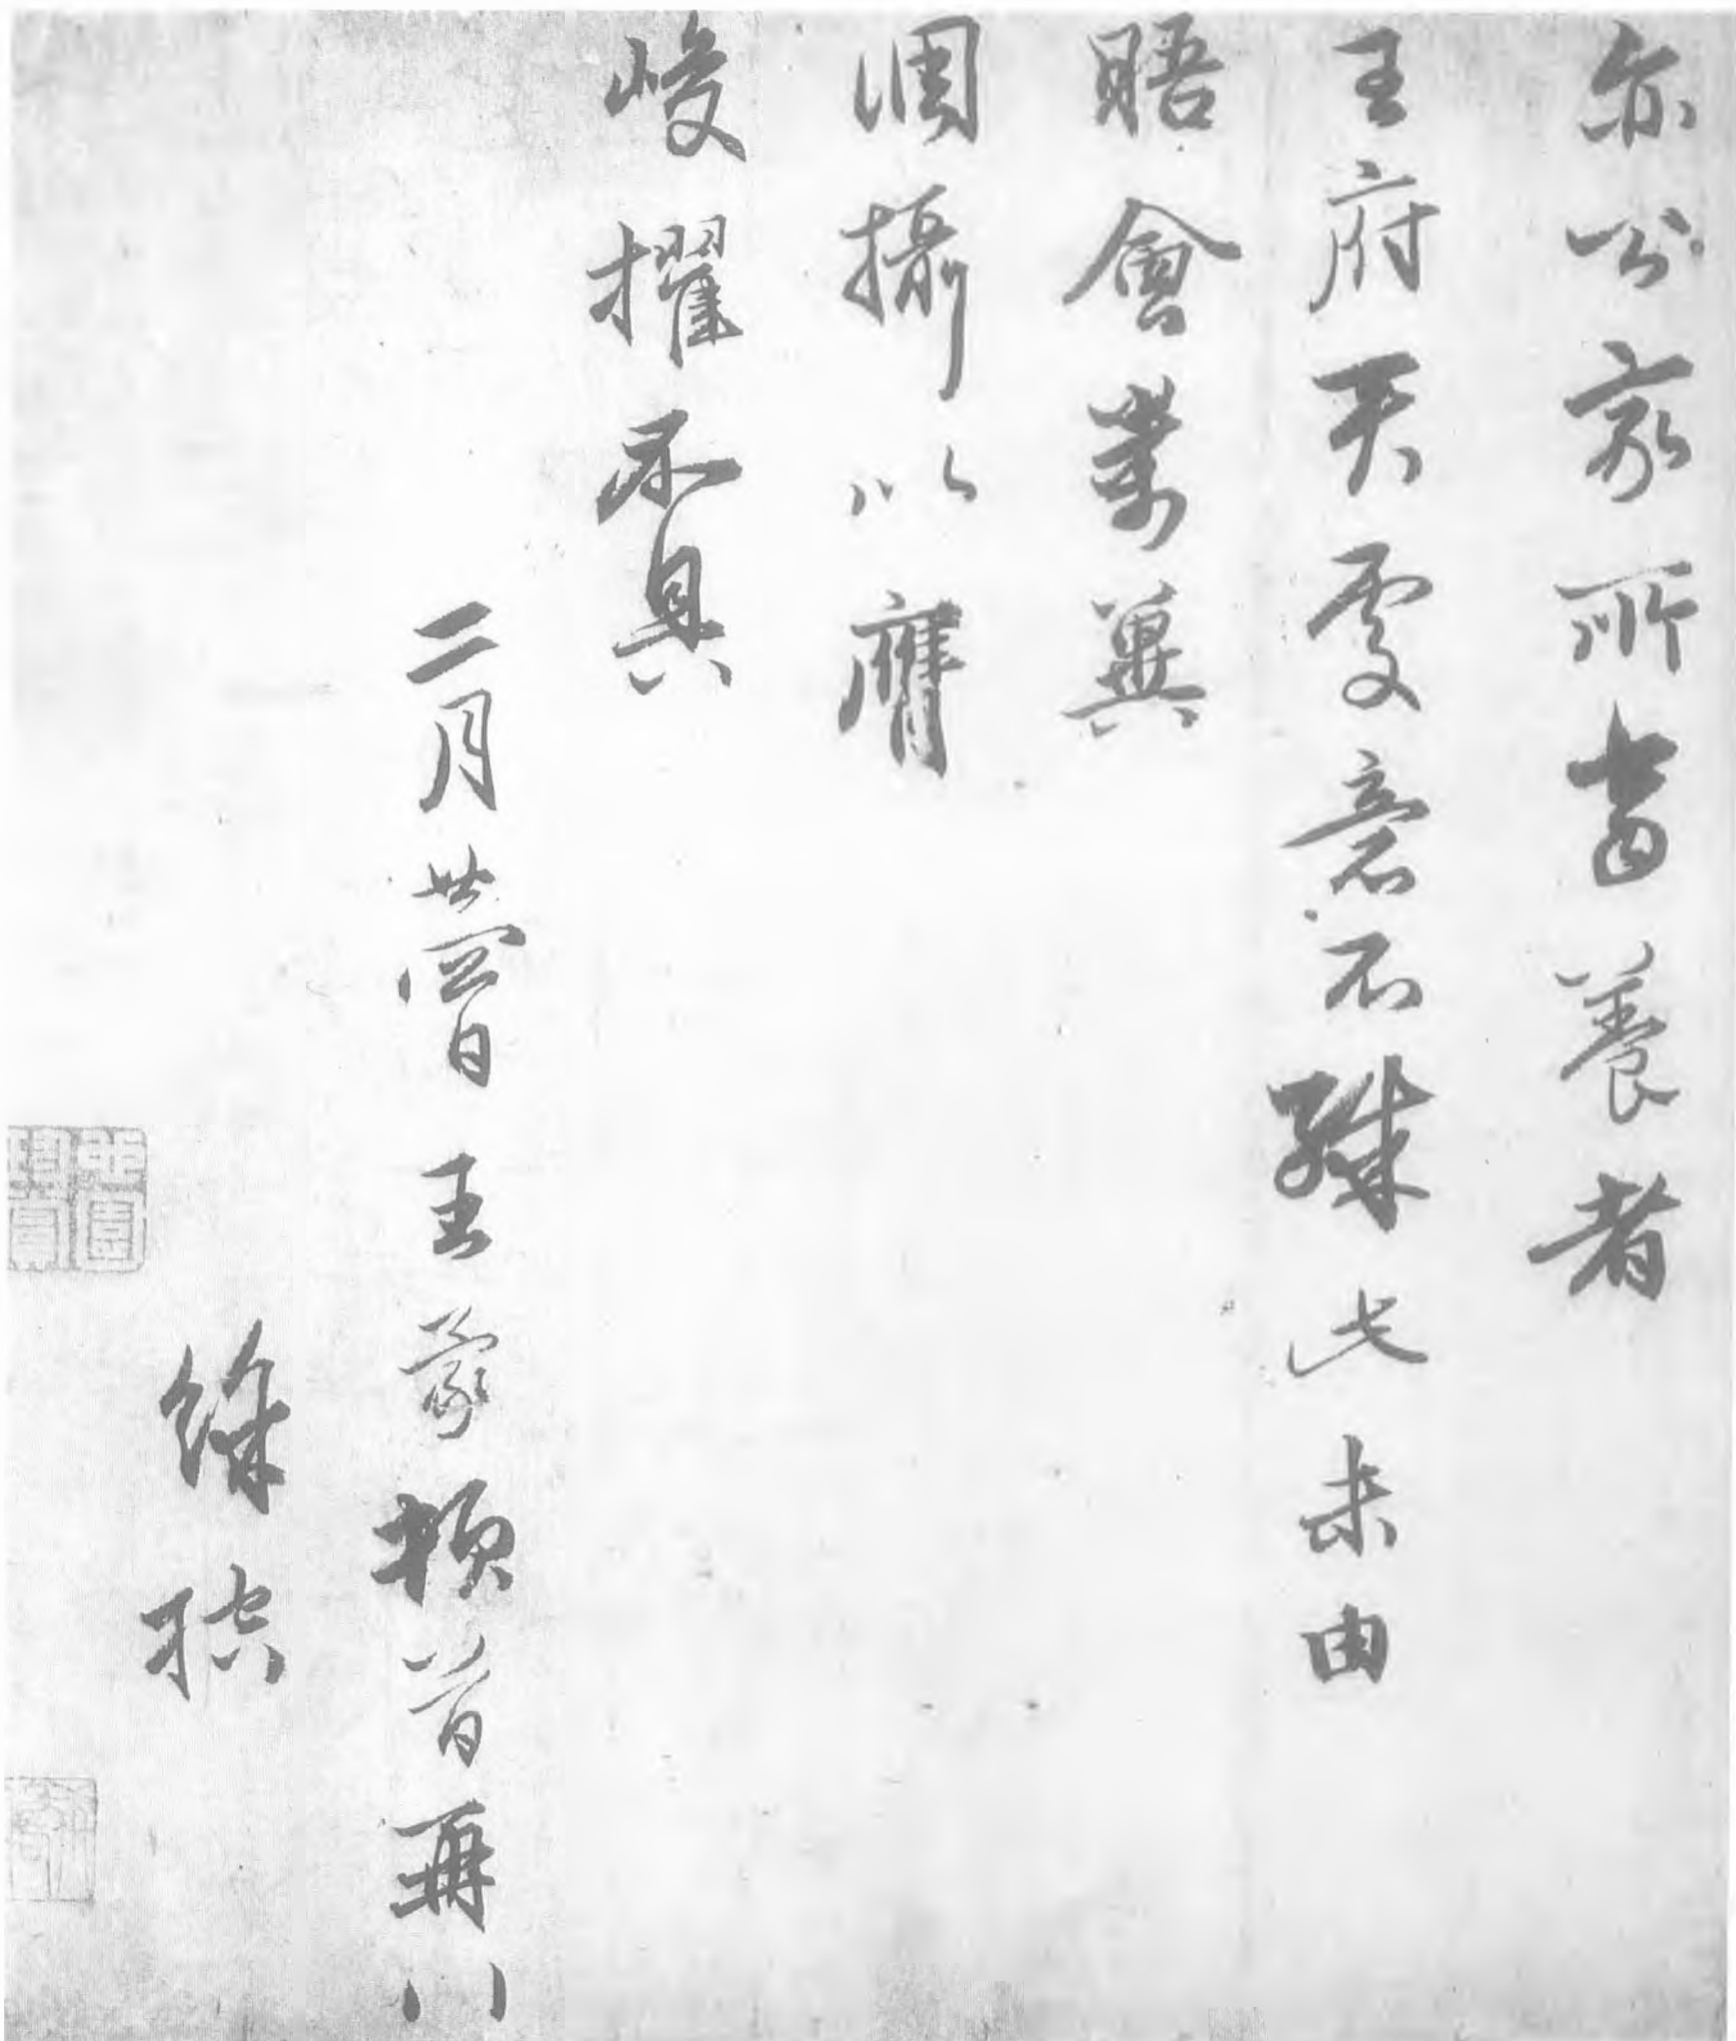 亦公家所當養者
王府天處意不殊此未由
晤會萬冀
調攝以膺
峻擢不具
二月廿四日王蒙頓首再